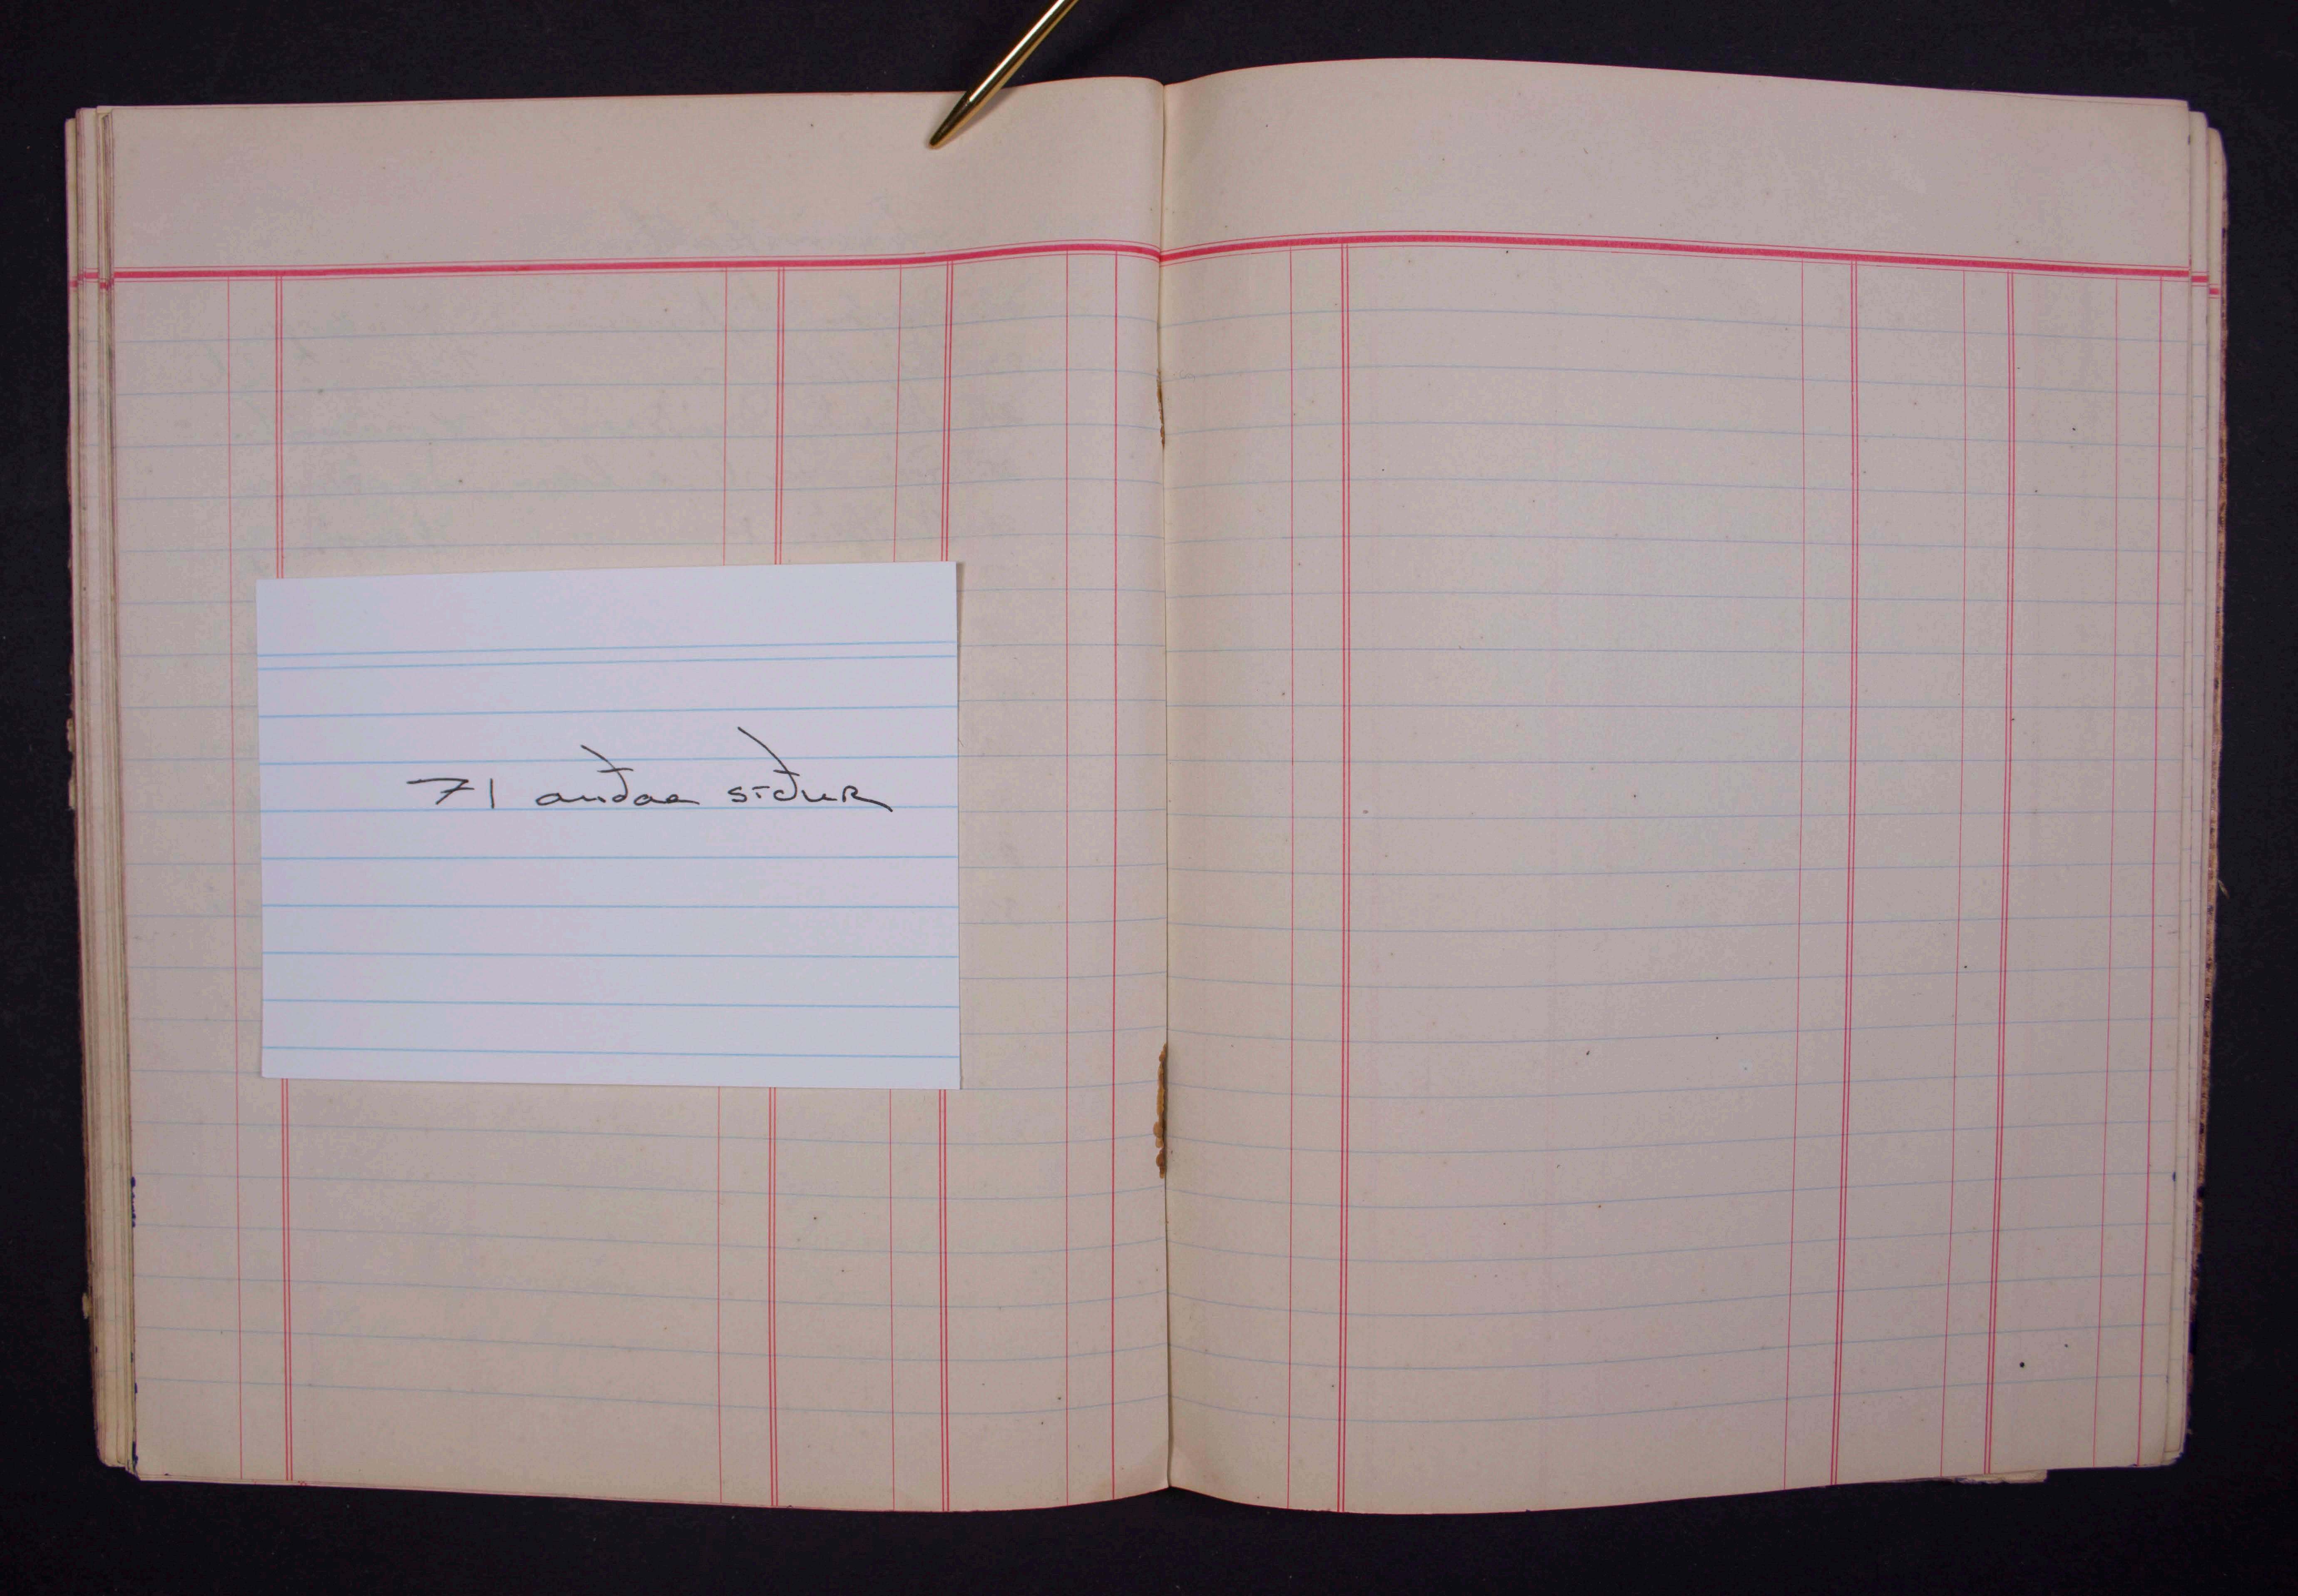 71 auðar síður